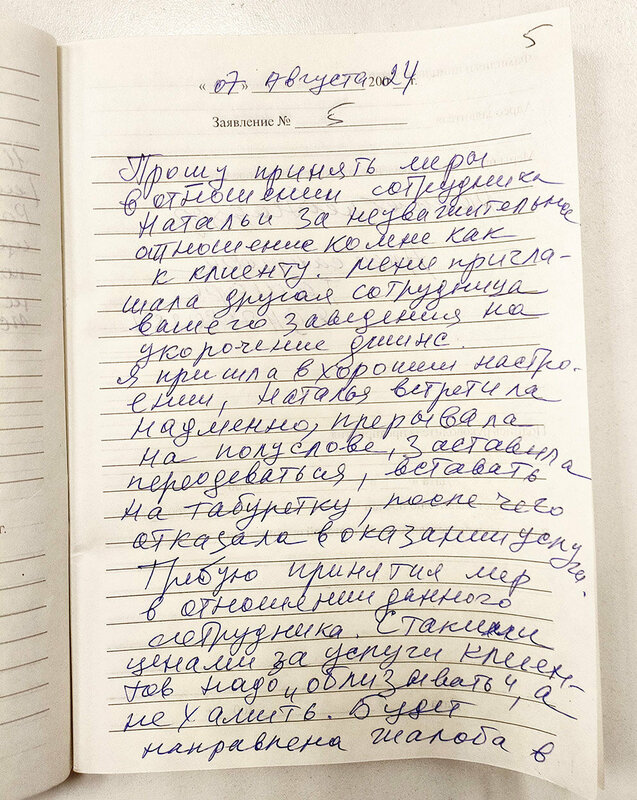 5
« 07 » Августа 200 24 г.
Заявление № 5
Прошу принять меры
в отношении сотрудника
Натальи за неуважительное
отношение ко мне как
к клиенту. Меня пригла-
шала другая сотрудница
вашего заведения на
укорочение джинс.
Я пришла в хорошем настро-
ении, Наталья встретила
надменно, прерывала
на полуслове, заставила
переодеваться, вставать
на табуретку, после чего
отказала в оказании услуги.
Требую принятия мер
в отношении данного
сотрудника. С такими
ценами за услуги клиен-
тов надо "облизывать", а
не хамить. Будет
направлена жалоба в
г.